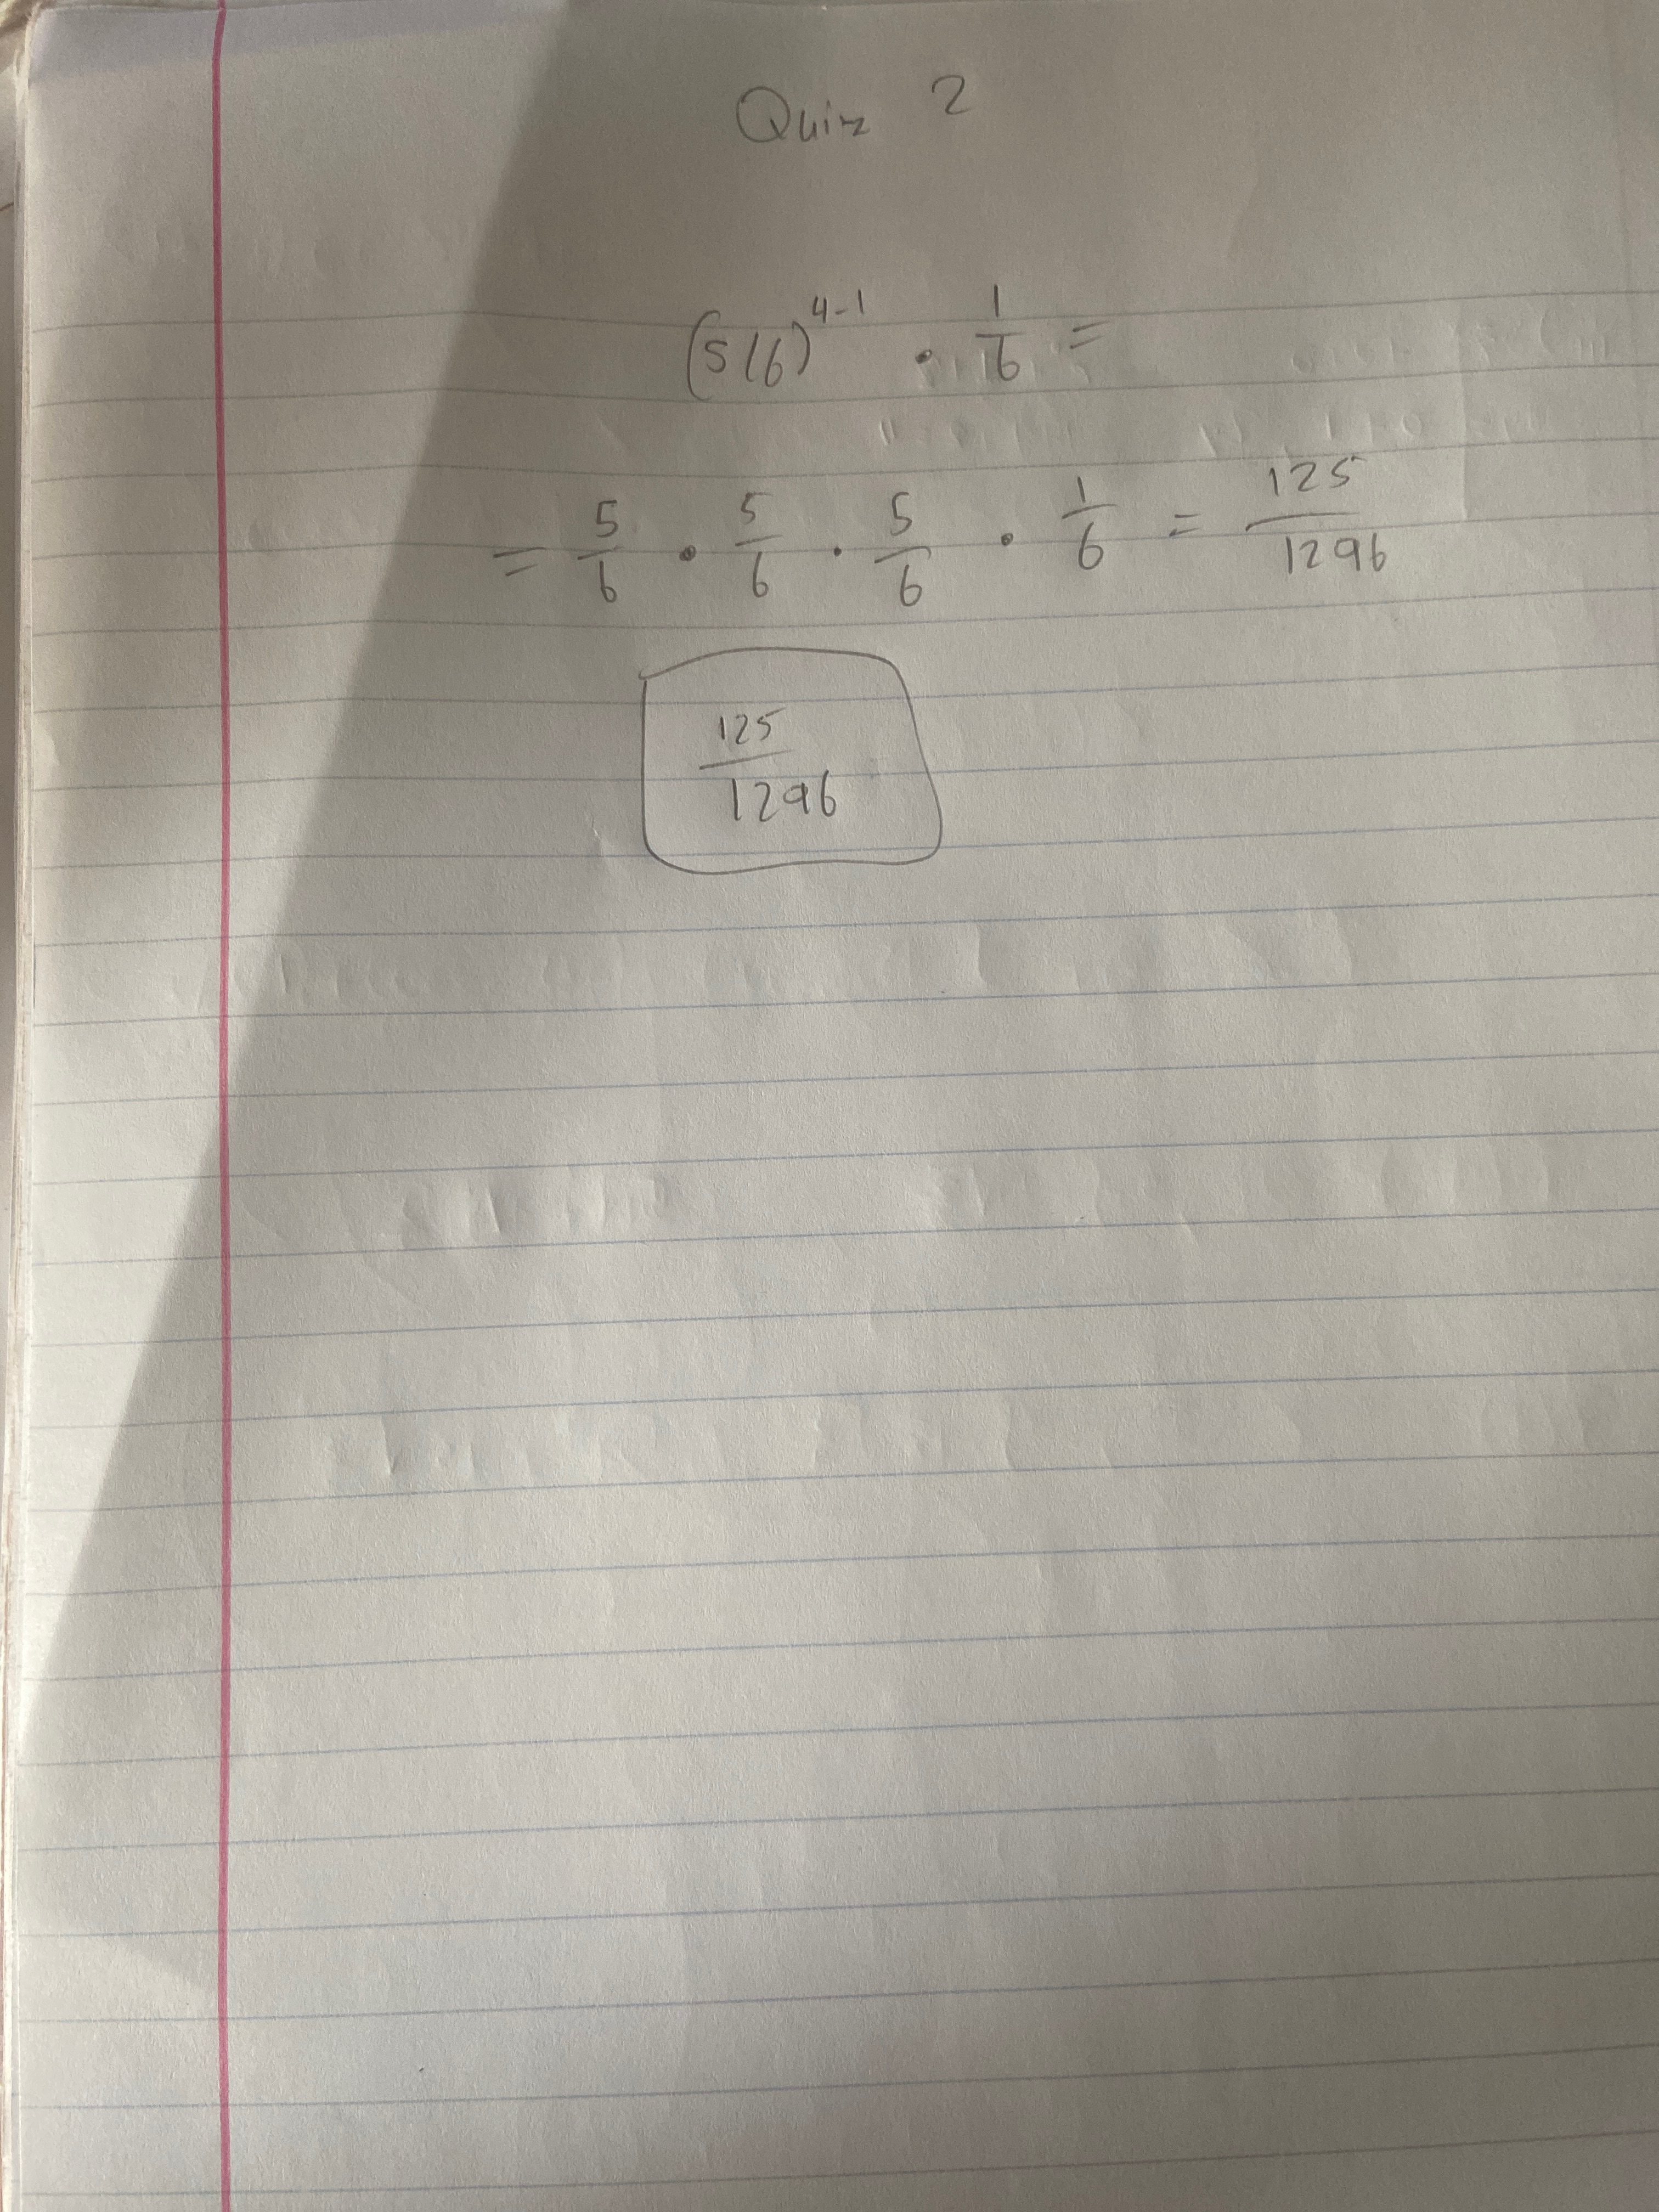 Quiz 2
(5/6)^{4-1} · \frac{1}{6} =
= \frac{5}{6} · \frac{5}{6} · \frac{5}{6} · \frac{1}{6} = \frac{125}{1296}
\frac{125}{1296}